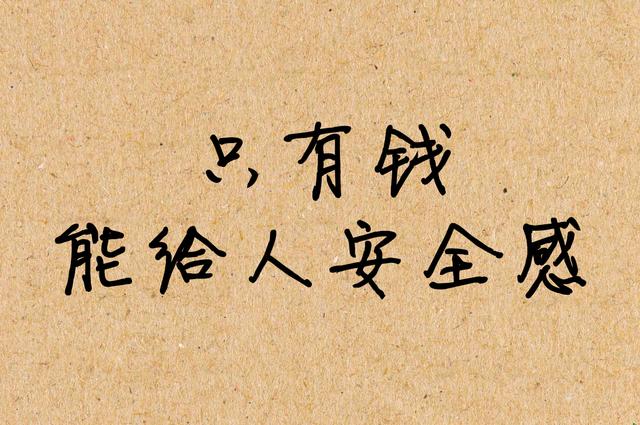 只有钱
能给人安全感